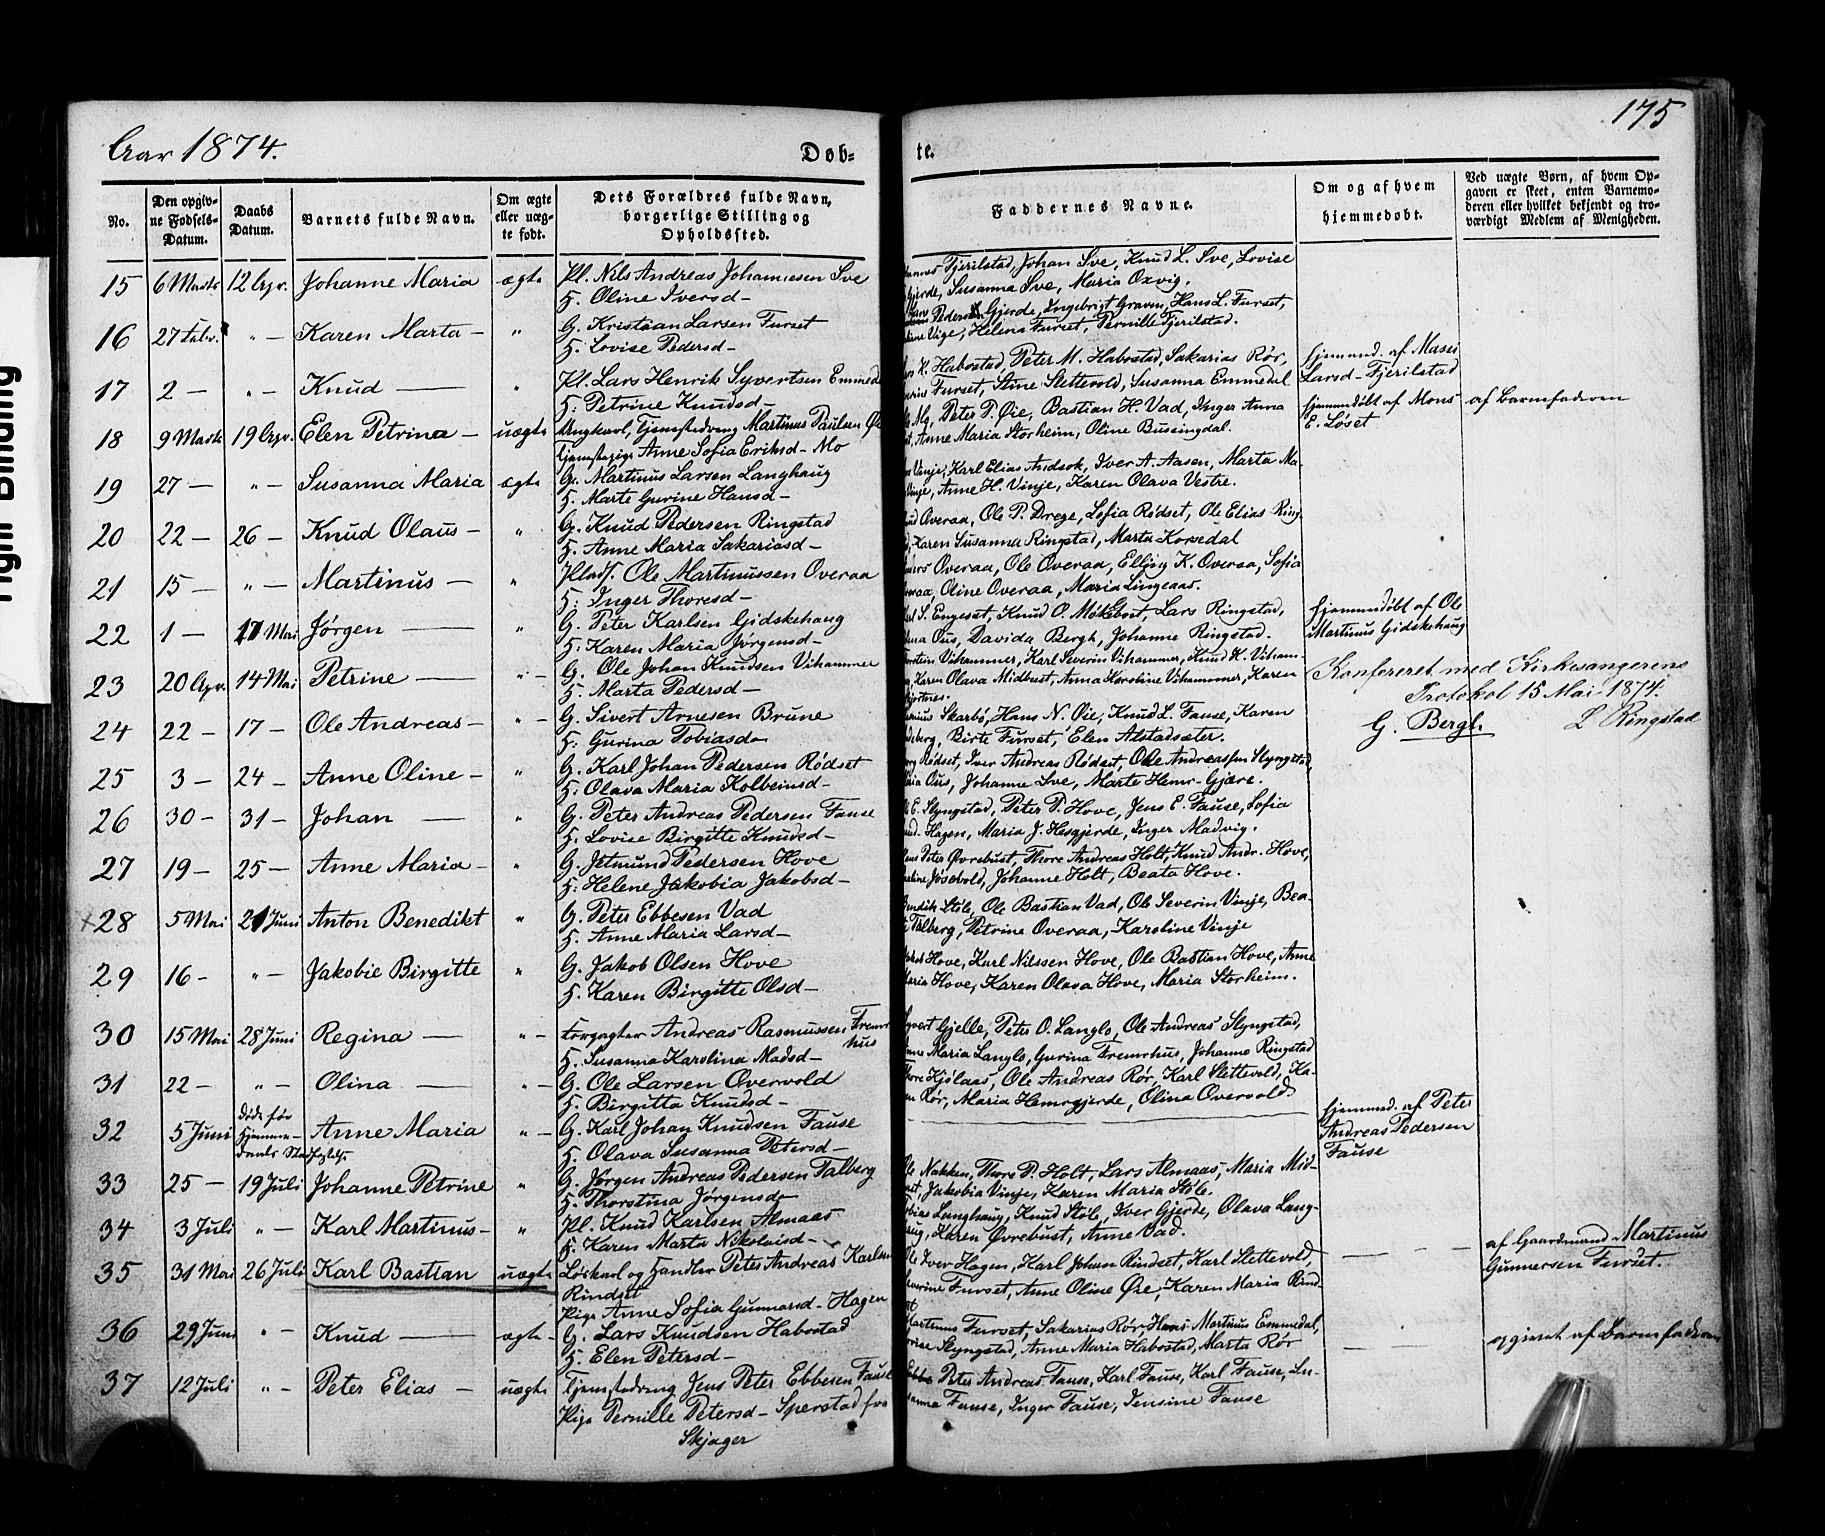 175
Aar 1874.
Døb=
te.
No.
Den opgiv-
ne Fødsels-
Datum.
Daabs
Datum.
Barnets fulde Navn.
Om ægte
eller uæg-
te født.
Dets Forældres fulde Navn,
borgerlige Stilling og
Opholdssted.
Faddernes Navne.
Om og af hvem
hjemmedøbt.
Ved uægte Børn, af hvem Op-
gaven er skeet, enten Barnemo-
deren eller hvilket bekjendt og tro-
værdigt Medlem af Menigheden.
15 6 Marts 12 Apr. Johanne Maria ægte Pl. Nils Andreas Johannesen Sve
H. Oline Iversd–
Fjerilstad, Johan Sve, Knud L. Sve, Lovise
Gjerde, Susanna Sve, Maria Oxvig.
16 27 Febr. " – Karen Marta – " G. Kristian Larsen Furset
H. Lovise Pedersd–
Pedersen Gjerde, Ingebrigt Graven, Hans L. Furset,
Vige, Helena Furset, Pernille Fjerilstad.
17 2 – " – Knud — " Pl. Lars Henrik Syvertsen Emmedal
H. Petrine Knudsd–
H. Habostad, Peter M. Habostad, Sakarias Rør,
Furset, Stine Slettevold, Susanna Emmedal
hjemmed. af Masei
Larsd– Fjerilstad
18 9 Marts 19 Apr. Elen Petrina – uægte Ungkarl, Tjenestedreng Martinus Paulsen Øie
Tjenestepige Anne Sofia Eriksd– Mo
Peter P. Øie, Bastian H. Vad, Inger Anna
Anne Maria Storheim, Oline Bussingdal.
hjemmedøbt af Mons
E. Løset
af Barnefaderen
19 27 – " – Susanna Maria ægte G. Martinus Larsen Langhaug
H. Marte Gurine Hansd–
Vinje, Karl Elias Andsok, Iver A. Aasen, Marta Ma-
Vinje, Anne H. Vinje, Karen Olava Vestre.
20 22 – 26 – Knud Olaus – " G. Knud Pedersen Ringstad
H. Anne Maria Sakariasd–
Overaa, Ole P. Drege, Sofia Rødset, Ole Elias Ring
Karen Susanna Ringstad, Marta Korsedal
21 15 – " – Martinus – " Ole Martinussen Overaa
H. Inger Thoresd–
Overaa, Ole Overaa, Elling K. Overaa, Sofia
Oline Overaa, Maria Lingeaas.
22 1 – 17 Mai Jørgen — " G. Peter Karlsen Gidskehaug
H. Karen Maria Jørgensd–
S. Engeset, Knud O. Møkebost, Lars Ringstad,
Ous, Davida Bergh, Johanne Ringstad.
hjemmedøbt af Ole
Martinus Gidskehaug
23 20 Apr. 14 Mai Petrine — " – G. Ole Johan Knudsen Vihammer
H. Marta Pedersd–
Vihammer, Karl Severin Vihammer, Knud K. Viham-
Karen Olava Midbust, Anna Karoline Vihammer, Karen
Konfereret med Kirkesangerens
Protokol 15 Mai 1874.
G. Bergh. L Ringstad
24 22 – 17 – Ole Andreas – " – G. Sivert Arnesen Brune
H. Gurina Tobiasd–
Skarbø, Hans N. Øie, Knud L. Fause, Karen
Birte Furset, Elen Alstadsæter.
25 3 – 24 – Anne Oline – " G. Karl Johan Pedersen Rødset
H. Olava Maria Kolbeinsd–
Rødset, Iver Andreas Rødset, Ole Andreassen Slyngstad,
Ous, Johanne Sve, Marte Hemr-Gjære.
26 30 – 31 – Johan — " G. Peter Andreas Pedersen Fause
H. Lovise Birgitte Knudsd–
E. Slyngstad, Peter P. Hove, Jens E. Fause, Sofia
Hagen, Maria J. Hesgjerde, Inger Madvig.
27 19 – 25 – Anne Maria – " G. Jetmund Pedersen Hove
H. Helene Jakobia Jakobsd–
Peter Øvrebust, Thore Andreas Holt, Knud Andr. Hove,
Jøsevold, Johanne Holt, Beata Hove.
x 28 5 Mai 21 Juni Anton Benedikt " G. Peter Ebbesen Vad
H. Anne Maria Larsd–
Støle, Ole Bastian Vad, Ole Severin Vinje, Bea-
Talberg, Petrine Overaa, Karoline Vinje
29 16 – " – Jakobie Birgitte " G. Jakob Olsen Hove
H. Karen Birgitte Olsd–
Hove, Karl Nilssen Hove, Ole Bastian Hove, Anne
Maria Hove, Karen Olava Hove, Maria Storheim.
30 15 Mai 28 Juni Regina — " – Forpagter Andreas Rasmussen Fremr
hus
H. Susanna Karolina Madsd–
Gjelle, Peter O. Langlo, Ole Andreas Slyngstad,
Maria Langlo, Gurina Fremrhus, Johanne Ringstad
31 22 – " – Olina — " – G. Ole Larsen Overvold
H. Birgitta Knudsd–
Hjølaas, Ole Andreas Rør, Karl Slettevold, Ka-
Rør, Maria Hemrgjerde, Olina Overvold
32 5 Juni Døde før
Hjemme-
daabs Stadfestelse
Anne Maria " – G. Karl Johan Knudsen Fause
H. Olava Susanna Petersd–
hjemmed. af Peter
Andreas Pedersen
Fause
33 25 – 19 Juli Johanne Petrine " G. Jørgen Andreas Pedersen Talberg
H. Thorstina Jørgensd–
Ole Nakken, Thore P. Holt, Lars Almaas, Maria Mid-
Jakobia Vinje, Karen Maria Støle.
34 3 Juli " – Karl Martinus – " Pl. Knud Karlsen Almaas
H. Karen Marta Nikolaisd–
Langhaug, Knud Støle, Iver Gjerde, Olava Lang-
Karen Øvrebust, Anne Vad.
35 31 Mai 26 Juli Karl Bastian uægte Løskarl og Handler Peter Andreas Karlsen
Rindset
Pige Anne Sofia Gunnarsd– Hagen
Iver Hagen, Karl Johan Rindset, Karl Slettevold,
Furset, Anne Oline Øie, Karen Maria Rind-
af Gaardmand Martinus
Gunnersen Furset.
36 29 Juni " – Knud — ægte – G. Lars Knudsen Habostad
H. Elen Petersd–
Martinus Furset, Sakarias Rør, Hans Martinus Emmedal,
Slyngstad, Anne Maria Habostad, Marta Rør
opgivet af Barnefaderen
37 12 Juli " – Peter Elias – uægte Tjenestedreng Jens Peter Ebbesen Fause
Pige Pernille Petersd– Sperstad fra
Skjager
Ebbe Peter Andreas Fause, Karl Fause, Karl Fause, Su-
sanna Fause, Inger Fause, Jensine Fause
Tight Binding